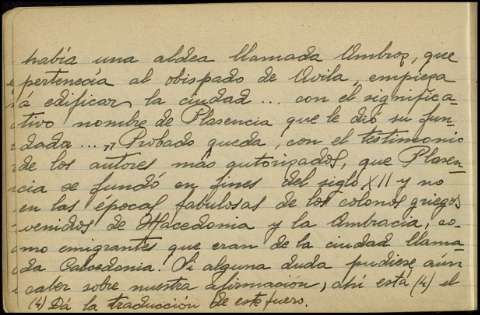 había una aldea llamada Ambroz, que
pertenecía al obispado de Avila, empieza
a edificar la ciudad ... con el significa-
tivo nombre de Plasencia que le dió su fun-
dada ... „ Probado queda, con el testimonio
de los autores más autorizados, que Plasen-
cia se fundó en fines del siglo XII y no
en las épocas fabulosas de los colonos griegos
venidos de Macedonia y la Ambracia, co-
mo emigrantes que eran de la ciudad llama-
da Calcedonia. Si alguna duda pudiese aún
caber sobre nuestra afirmación, ahí está (4) el
(4) Dá la traducción de este fuero.